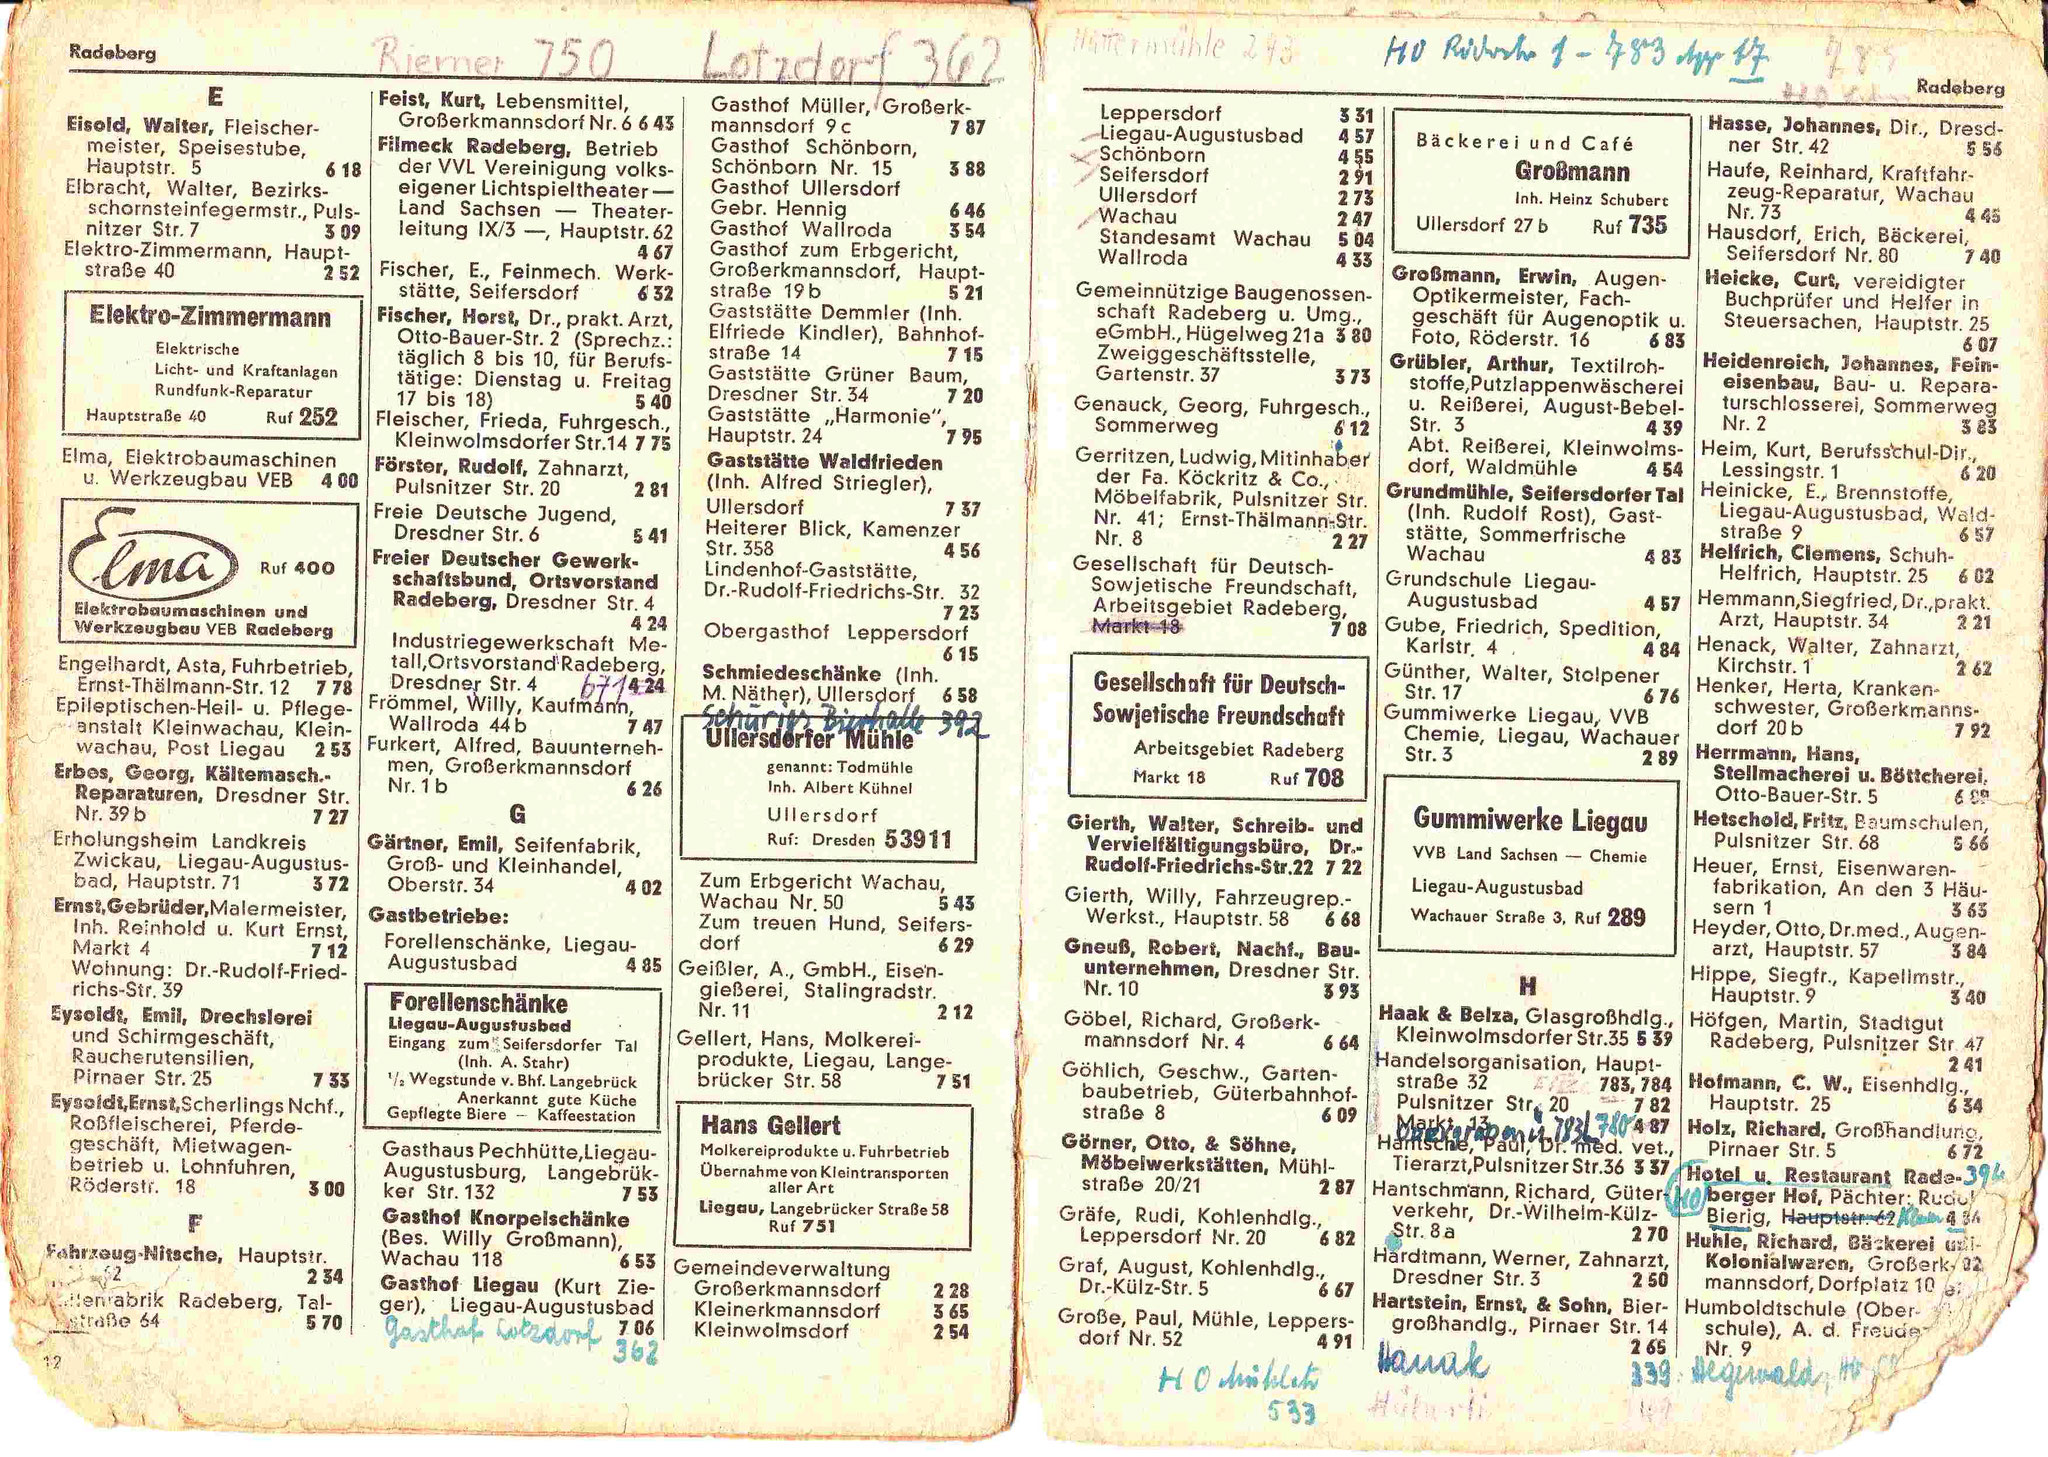 Radeberg
Riemer 750
Lotzdorf 362
E
Eisold, Walter, Fleischer-
meister, Speisestube,
Hauptstr. 5 6 18
Elbracht, Walter, Bezirks-
schornsteinfegermstr., Puls-
nitzer Str. 7 3 09
Elektro-Zimmermann, Haupt-
straße 40 2 52
Elektro-Zimmermann
Elektrische
Licht- und Kraftanlagen
Rundfunk-Reparatur
Hauptstraße 40 Ruf 252
Elma, Elektrobaumaschinen
u. Werkzeugbau VEB 4 00
Elma Ruf 400
Elektrobaumaschinen und
Werkzeugbau VEB Radeberg
Engelhardt, Asta, Fuhrbetrieb,
Ernst-Thälmann-Str. 12 7 78
Epileptischen-Heil- u. Pflege-
anstalt Kleinwachau, Klein-
wachau, Post Liegau 2 53
Erbes, Georg, Kältemasch.-
Reparaturen, Dresdner Str.
Nr. 39 b 7 27
Erholungsheim Landkreis
Zwickau, Liegau-Augustus-
bad, Hauptstr. 71 3 72
Ernst, Gebrüder, Malermeister,
Inh. Reinhold u. Kurt Ernst,
Markt 4 7 12
Wohnung: Dr.-Rudolf-Fried-
richs-Str. 39
Eysoldt, Emil, Drechslerei
und Schirmgeschäft,
Raucherutensilien,
Pirnaer Str. 25 7 33
Eysoldt, Ernst, Scherlings Nchf.,
Roßfleischerei, Pferde-
geschäft, Mietwagen-
betrieb u. Lohnfuhren,
Röderstr. 18 3 00
F
Fahrzeug-Nitsche, Hauptstr.
62 2 34
Radeberg, Tal-
straße 64 5 70
12
Feist, Kurt, Lebensmittel,
Großerkmannsdorf Nr. 6 6 43
Filmeck Radeberg, Betrieb
der VVL Vereinigung volks-
eigener Lichtspieltheater —
Land Sachsen — Theater-
leitung IX/3 —, Hauptstr. 62
4 67
Fischer, E., Feinmech. Werk-
stätte, Seifersdorf 6 32
Fischer, Horst, Dr., prakt. Arzt,
Otto-Bauer-Str. 2 (Sprechz.:
täglich 8 bis 10, für Berufs-
tätige: Dienstag u. Freitag
17 bis 18) 5 40
Fleischer, Frieda, Fuhrgesch.,
Kleinwolmsdorfer Str. 14 7 75
Förster, Rudolf, Zahnarzt,
Pulsnitzer Str. 20 2 81
Freie Deutsche Jugend,
Dresdner Str. 6 5 41
Freier Deutscher Gewerk-
schaftsbund, Ortsvorstand
Radeberg, Dresdner Str. 4
4 24
Industriegewerkschaft Me-
tall, Ortsvorstand Radeberg,
Dresdner Str. 4 671 4 24
Frömmel, Willy, Kaufmann,
Wallroda 44 b 7 47
Furkert, Alfred, Bauunterneh-
men, Großerkmannsdorf
Nr. 1 b 6 26
G
Gärtner, Emil, Seifenfabrik,
Groß- und Kleinhandel,
Oberstr. 34 4 02
Gastbetriebe:
Forellenschänke, Liegau-
Augustusbad 4 85
Forellenschänke
Liegau-Augustusbad
Eingang zum Seifersdorfer Tal
(Inh. A. Stahr)
½ Wegstunde v. Bhf. Langebrück
Anerkannt gute Küche
Gepflegte Biere — Kaffeestation
Gasthaus Pechhütte, Liegau-
Augustusburg, Langebrük-
ker Str. 132 7 53
Gasthof Knorpelschänke
(Bes. Willy Großmann),
Wachau 118 6 53
Gasthof Liegau (Kurt Zie-
ger), Liegau-Augustusbad
7 06
Gasthof Lotzdorf
362
Gasthof Müller, Großerk-
mannsdorf 9 c 7 87
Gasthof Schönborn,
Schönborn Nr. 15 3 88
Gasthof Ullersdorf
Gebr. Hennig 6 46
Gasthof Wallroda 3 54
Gasthof zum Erbgericht,
Großerkmannsdorf, Haupt-
straße 19 b 5 21
Gaststätte Demmler (Inh.
Elfriede Kindler), Bahnhof-
straße 14 7 15
Gaststätte Grüner Baum,
Dresdner Str. 34 7 20
Gaststätte „Harmonie",
Hauptstr. 24 7 95
Gaststätte Waldfrieden
(Inh. Alfred Striegler),
Ullersdorf 7 37
Heiterer Blick, Kamenzer
Str. 358 4 56
Lindenhof-Gaststätte,
Dr.-Rudolf-Friedrichs-Str. 32
7 23
Obergasthof Leppersdorf
6 15
Schmiedeschänke (Inh.
M. Näther), Ullersdorf 6 58
Schurigs Bierhalle 392
Ullersdorfer Mühle
genannt: Todmühle
Inh. Albert Kühnel
Ullersdorf
Ruf: Dresden 53911
Zum Erbgericht Wachau,
Wachau Nr. 50 5 43
Zum treuen Hund, Seifers-
dorf 6 29
Geißler, A., GmbH., Eisen-
gießerei, Stalingradstr.
Nr. 11 2 12
Gellert, Hans, Molkerei-
produkte, Liegau, Lange-
brücker Str. 58 7 51
Hans Gellert
Molkereiprodukte u. Fuhrbetrieb
Übernahme von Kleintransporten
aller Art
Liegau, Langebrücker Straße 58
Ruf 751
Gemeindeverwaltung
Großerkmannsdorf 2 28
Kleinerkmannsdorf 3 65
Kleinwolmsdorf 2 54
Hüttermühle 293
HO 1 - 783 App 17
785
Radeberg
Leppersdorf 3 31
Liegau-Augustusbad 4 57
Schönborn 4 55
Seifersdorf 2 91
Ullersdorf 2 73
Wachau 2 47
Standesamt Wachau 5 04
Wallroda 4 33
Gemeinnützige Baugenossen-
schaft Radeberg u. Umg.,
eGmbH., Hügelweg 21a 3 80
Zweiggeschäftsstelle,
Gartenstr. 37 3 73
Genauck, Georg, Fuhrgesch.,
Sommerweg 6 12
Gerritzen, Ludwig, Mitinhaber
der Fa. Köckritz & Co.,
Möbelfabrik, Pulsnitzer Str.
Nr. 41; Ernst-Thälmann-Str.
Nr. 8 2 27
Gesellschaft für Deutsch-
Sowjetische Freundschaft,
Arbeitsgebiet Radeberg,
Markt 18 7 08
Gesellschaft für Deutsch-
Sowjetische Freundschaft
Arbeitsgebiet Radeberg
Markt 18 Ruf 708
Gierth, Walter, Schreib- und
Vervielfältigungsbüro, Dr.-
Rudolf-Friedrichs-Str. 22 7 22
Gierth, Willy, Fahrzeugrep.-
Werkst., Hauptstr. 58 6 68
Gneuß, Robert, Nachf., Bau-
unternehmen, Dresdner Str.
Nr. 10 3 93
Göbel, Richard, Großerk-
mannsdorf Nr. 4 6 64
Göhlich, Geschw., Garten-
baubetrieb, Güterbahnhof-
straße 8 6 09
Görner, Otto, & Söhne,
Möbelwerkstätten, Mühl-
straße 20/21 2 87
Gräfe, Rudi, Kohlenhdlg.,
Leppersdorf Nr. 20 6 82
Graf, August, Kohlenhdlg.,
Dr.-Külz-Str. 5 6 67
Große, Paul, Mühle, Leppers-
dorf Nr. 52 4 91
HO Mühlstr
533
Bäckerei und Café
Großmann
Inh. Heinz Schubert
Ullersdorf 27 b Ruf 735
Großmann, Erwin, Augen-
Optikermeister, Fach-
geschäft für Augenoptik u.
Foto, Röderstr. 16 6 83
Grübler, Arthur, Textilroh-
stoffe, Putzlappenwäscherei
u. Reißerei, August-Bebel-
Str. 3 4 39
Abt. Reißerei, Kleinwolms-
dorf, Waldmühle 4 54
Grundmühle, Seifersdorfer Tal
(Inh. Rudolf Rost), Gast-
stätte, Sommerfrische
Wachau 4 83
Grundschule Liegau-
Augustusbad 4 57
Gube, Friedrich, Spedition,
Karlstr. 4 4 84
Günther, Walter, Stolpener
Str. 17 6 76
Gummiwerke Liegau, VVB
Chemie, Liegau, Wachauer
Str. 3 2 89
Gummiwerke Liegau
VVB Land Sachsen — Chemie
Liegau-Augustusbad
Wachauer Straße 3, Ruf 289
H
Haak & Belza, Glasgroßhdlg.,
Kleinwolmsdorfer Str. 35 5 39
Handelsorganisation, Haupt-
straße 32 783, 784
Pulsnitzer Str. 20 7 82
Markt 13 4 87
Obergraben 783/ 780
Hantsche, Paul, Dr. med. vet.,
Tierarzt, Pulsnitzer Str. 36 3 37
Hantschmann, Richard, Güter-
verkehr, Dr.-Wilhelm-Külz-
Str. 8a 2 70
Hardtmann, Werner, Zahnarzt,
Dresdner Str. 3 2 50
Hartstein, Ernst, & Sohn, Bier-
großhandlg., Pirnaer Str. 14
2 65
Hanak 339
Hasse, Johannes, Dir., Dresd-
ner Str. 42 5 56
Haufe, Reinhard, Kraftfahr-
zeug-Reparatur, Wachau
Nr. 73 4 45
Hausdorf, Erich, Bäckerei,
Seifersdorf Nr. 80 7 40
Heicke, Curt, vereidigter
Buchprüfer und Helfer in
Steuersachen, Hauptstr. 25
6 07
Heidenreich, Johannes, Fein-
eisenbau, Bau- u. Repara-
turschlosserei, Sommerweg
Nr. 2 3 83
Heim, Kurt, Berufsschul-Dir.,
Lessingstr. 1 6 20
Heinicke, E., Brennstoffe,
Liegau-Augustusbad, Wald-
straße 9 6 57
Helfrich, Clemens, Schuh-
Helfrich, Hauptstr. 25 6 02
Hemmann, Siegfried, Dr., prakt.
Arzt, Hauptstr. 34 2 21
Henack, Walter, Zahnarzt,
Kirchstr. 1 2 62
Henker, Herta, Kranken-
schwester, Großerkmanns-
dorf 20 b 7 92
Herrmann, Hans,
Stellmacherei u. Böttcherei,
Otto-Bauer-Str. 5
Hetschold, Fritz, Baumschulen,
Pulsnitzer Str. 68 5 66
Heuer, Ernst, Eisenwaren-
fabrikation, An den 3 Häu-
sern 1 3 63
Heyder, Otto, Dr. med., Augen-
arzt, Hauptstr. 57 3 84
Hippe, Siegfr., Kapellmstr.,
Hauptstr. 9 3 40
Höfgen, Martin, Stadtgut
Radeberg, Pulsnitzer Str. 47
2 41
Hofmann, C. W., Eisenhdlg.,
Hauptstr. 25 6 34
Holz, Richard, Großhandlung,
Pirnaer Str. 5 6 72
Hotel u. Restaurant Rade- 394
HO berger Hof, Pächter: Rudol
Bierig, Hauptstr. 62
Huhle, Richard, Bäckerei u.
Kolonialwaren, Großerk-
mannsdorf, Dorfplatz 10
Humboldtschule (Ober-
schule), A. d. Freude
Nr. 9
Hegewald, HO